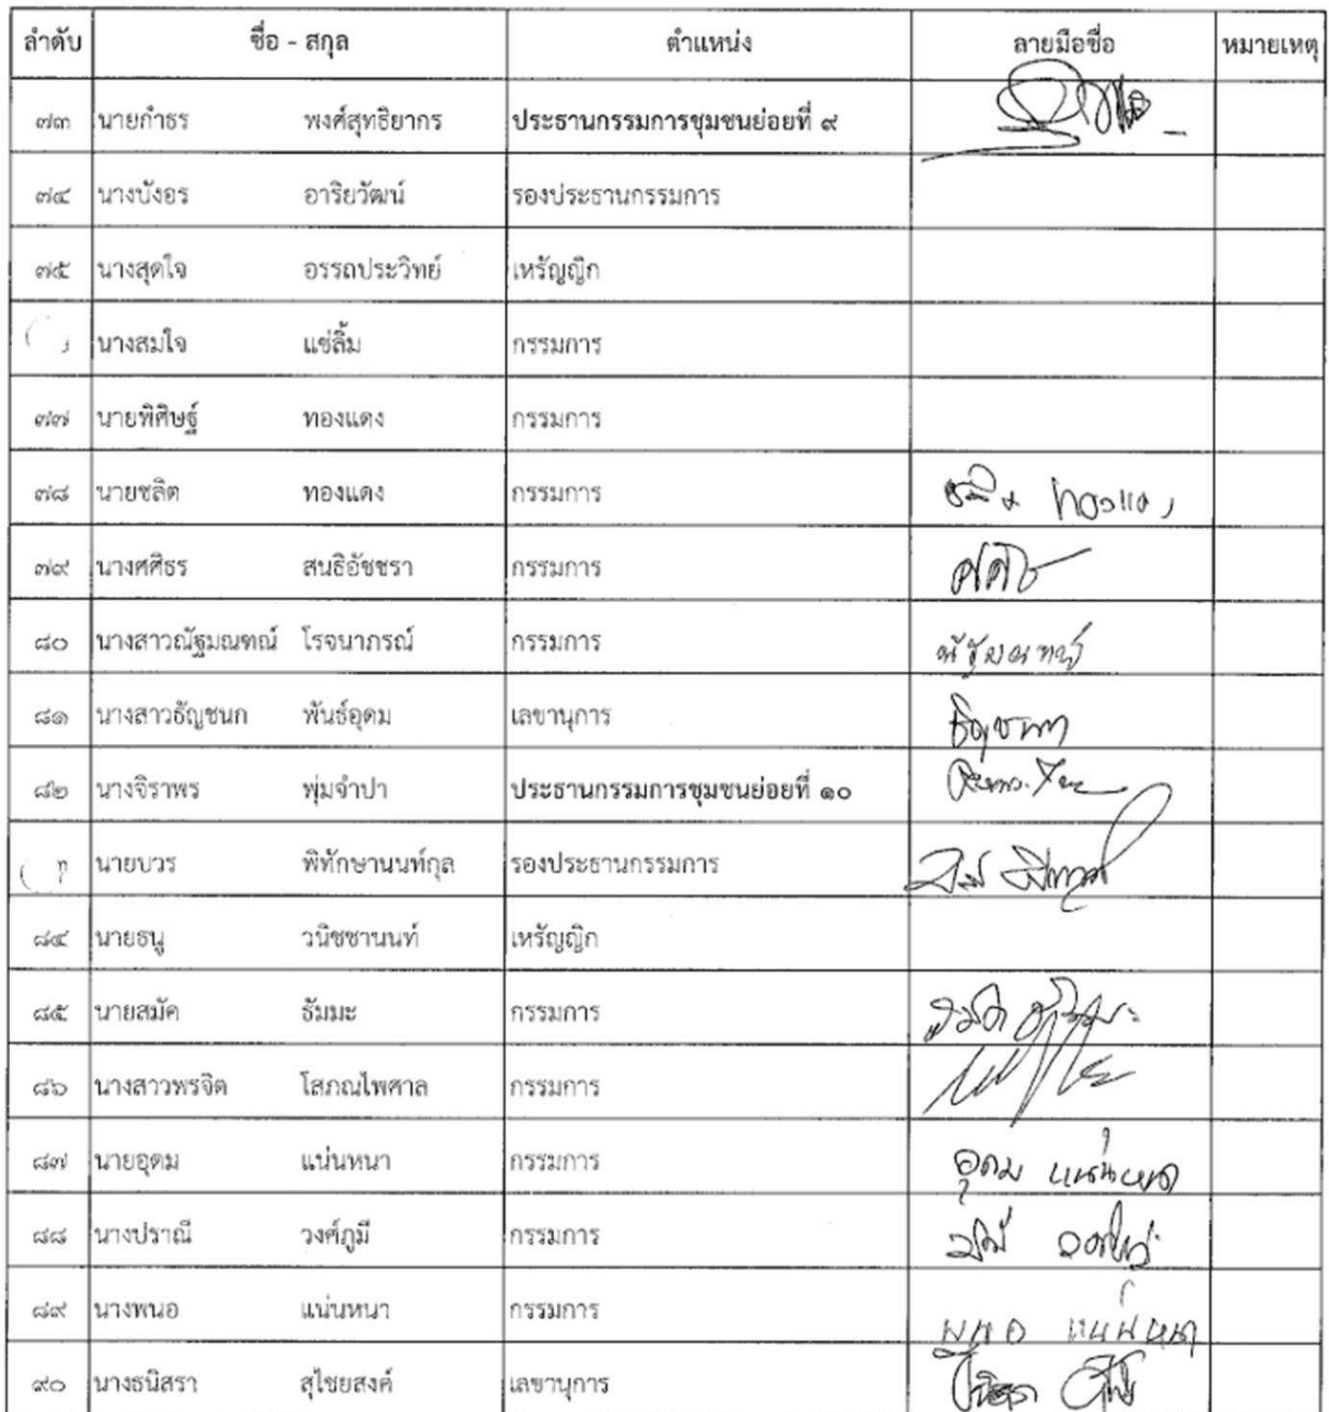 ลำดับ ชื่อ - สกุล ตำแหน่ง ลายมือชื่อ หมายเหตุ
๗๓ นายกำธร พงศ์สุทธิยากร ประธานกรรมการชุมชนย่อยที่ ๙
๗๔ นางบังอร อาริยวัฒน์ รองประธานกรรมการ
๗๕ นางสุดใจ อรรถประวิทย์ เหรัญญิก
นางสมใจ แซ่ลิ้ม กรรมการ
๗๗ นายพิศิษฐ์ ทองแดง กรรมการ
๗๘ นายชลิต ทองแดง กรรมการ
๗๙ นางศศิธร สนธิอัชชรา กรรมการ
๘๐ นางสาวณัฐมณฑณ์ โรจนาภรณ์ กรรมการ ณัฐมณฑน์
๘๑ นางสาวธัญชนก พันธ์อุดม เลขานุการ ธัญชนก
๘๒ นางจิราพร พุ่มจำปา ประธานกรรมการชุมชนย่อยที่ ๑๐
นายบวร พิทักษานนท์กุล รองประธานกรรมการ
๘๔ นายธนู วนิชชานนท์ เหรัญญิก
๘๕ นายสมัค ธัมมะ กรรมการ สมัค ธัมมะ
๘๖ นางสาวพรจิต โสภณไพศาล กรรมการ
๘๗ นายอุดม แน่นหนา กรรมการ อุดม แน่นหนา
๘๘ นางปราณี วงศ์ภูมี กรรมการ
๘๙ นางพนอ แน่นหนา กรรมการ พนอ แน่นหนา
๙๐ นางธนิสรา สุไชยสงค์ เลขานุการ